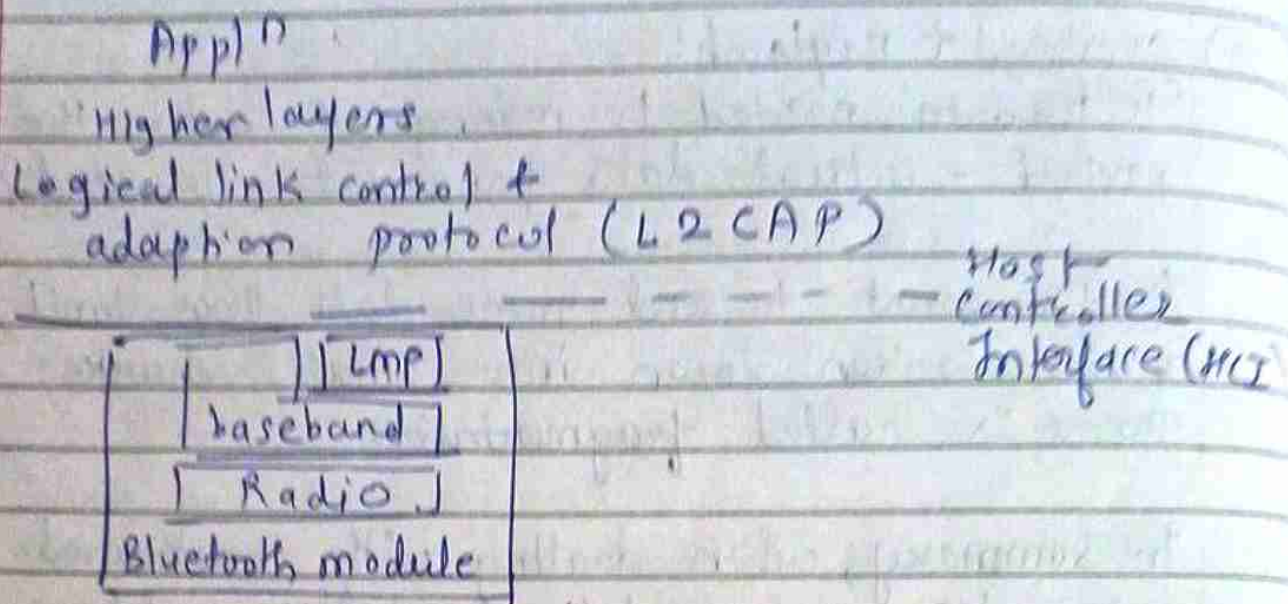 Appln
Higher layers
Logical link control &
adaption protocol (L2CAP)
Host
Controller
Interface (HCI
LMP
baseband
Radio
Bluetooth module